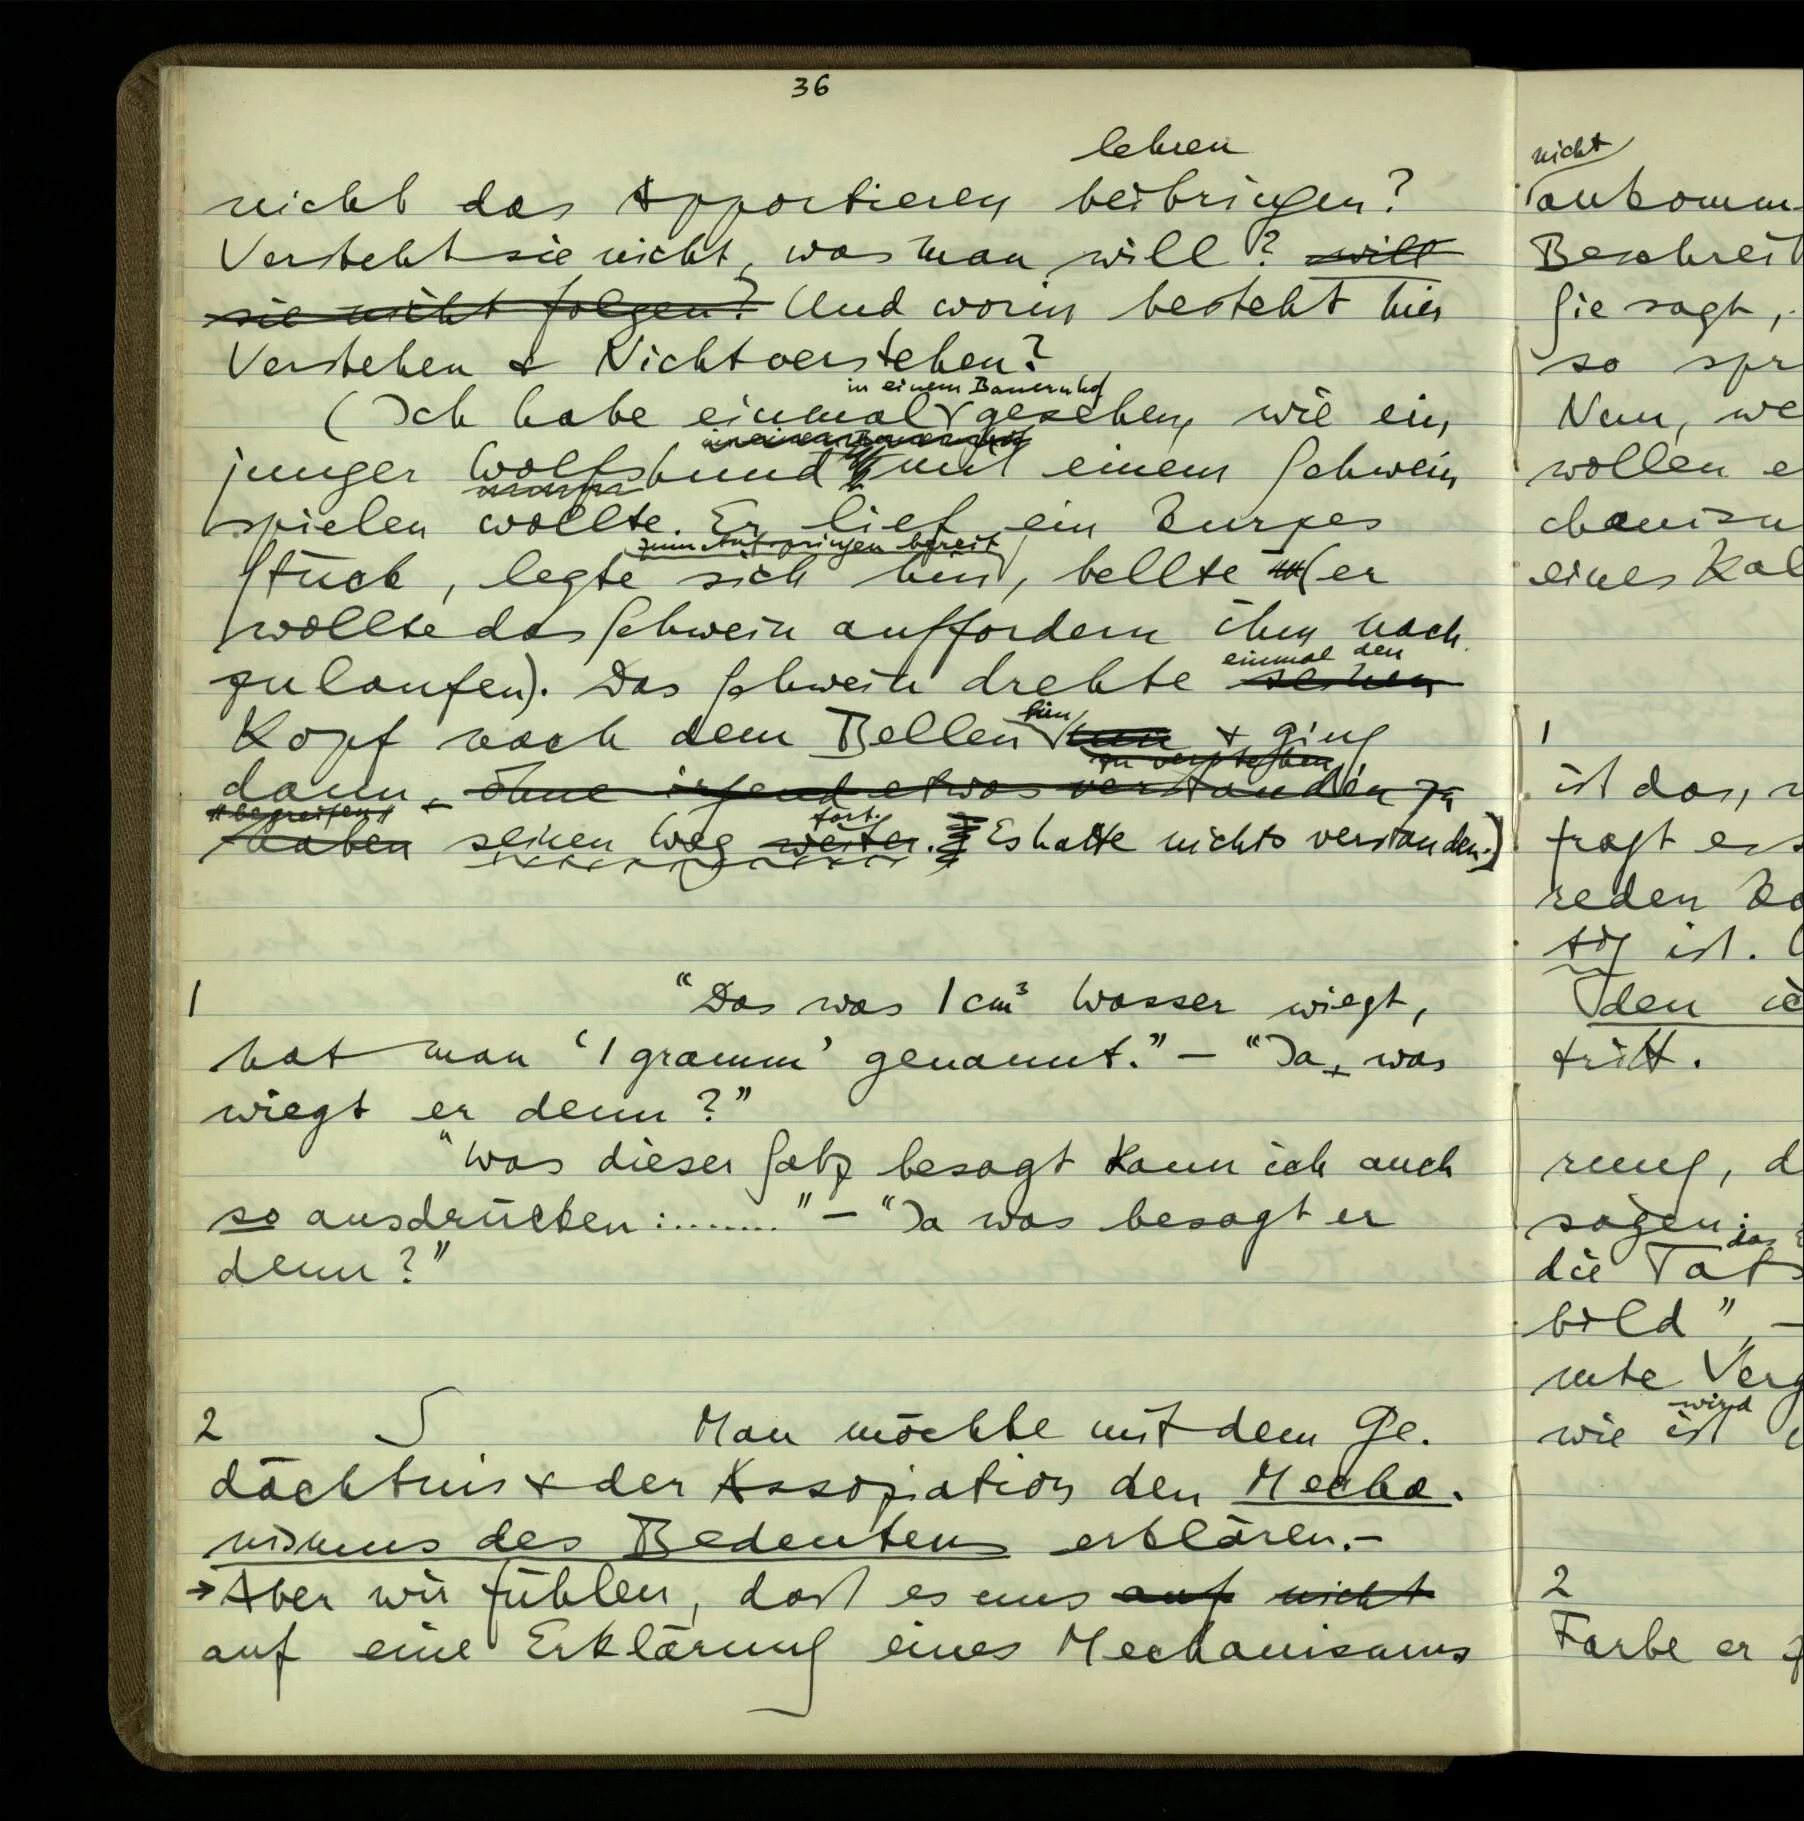 36
lehren
nicht das Apportieren beibringen?
Versteht sie nicht, was man will? will
sie nicht folgen? Und worin besteht hier
Verstehen & Nichtverstehen?
in einem Bauernhof
(Ich habe einmal gesehen, wie ein
in einem Bauernhof
junger Wolfshund mit einem Schwein
spielen wollte. Er lief ein kurzes
zum Aufspringen bereit
Stück, legte sich hin, bellte (er
wollte das Schwein auffordern ihm nach
einmal den
zulaufen). Das Schwein drehte seinen
hin
Kopf nach dem Bellen hin & ging
zu verstehen
dann, ohne irgend etwas verstanden zu
"begreifen" fort.
haben seinen Weg weiter. Es hatte nichts verstanden.)
1 "Das was 1 cm³ Wasser wiegt,
hat man '1 gramm' genannt." – "Ja, was
wiegt er denn?"
"Was dieser Satz besagt kann ich auch
so ausdrücken: ........" – "Ja was besagt er
denn?"
2 S Man möchte mit dem Ge-
dächtnis & der Assoziation den Mecha-
nismus des Bedeutens erklären. –
→ Aber wir fühlen, daß es uns auf nicht
auf eine Erklärung eines Mechanismus
nicht
ankomm
Beschreib
Sie sagt,
so spr
Nun, we
wollen e
chanism
eines Kal
1
ist das, w
fragt es
reden
ist.
den
tritt.
rung, d
sagen:
das
die Tats
bild", –
mte Verg
wird
wie ist
2
Farbe er